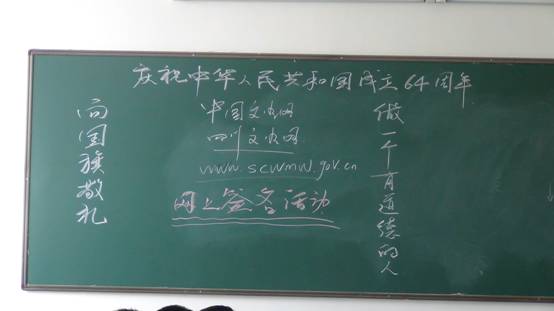 庆祝中华人民共和国成立64周年
向国旗敬礼
中国文明网
四川文明网
www.scwmw.gov.cn
网上签名活动
做一个有道德的人